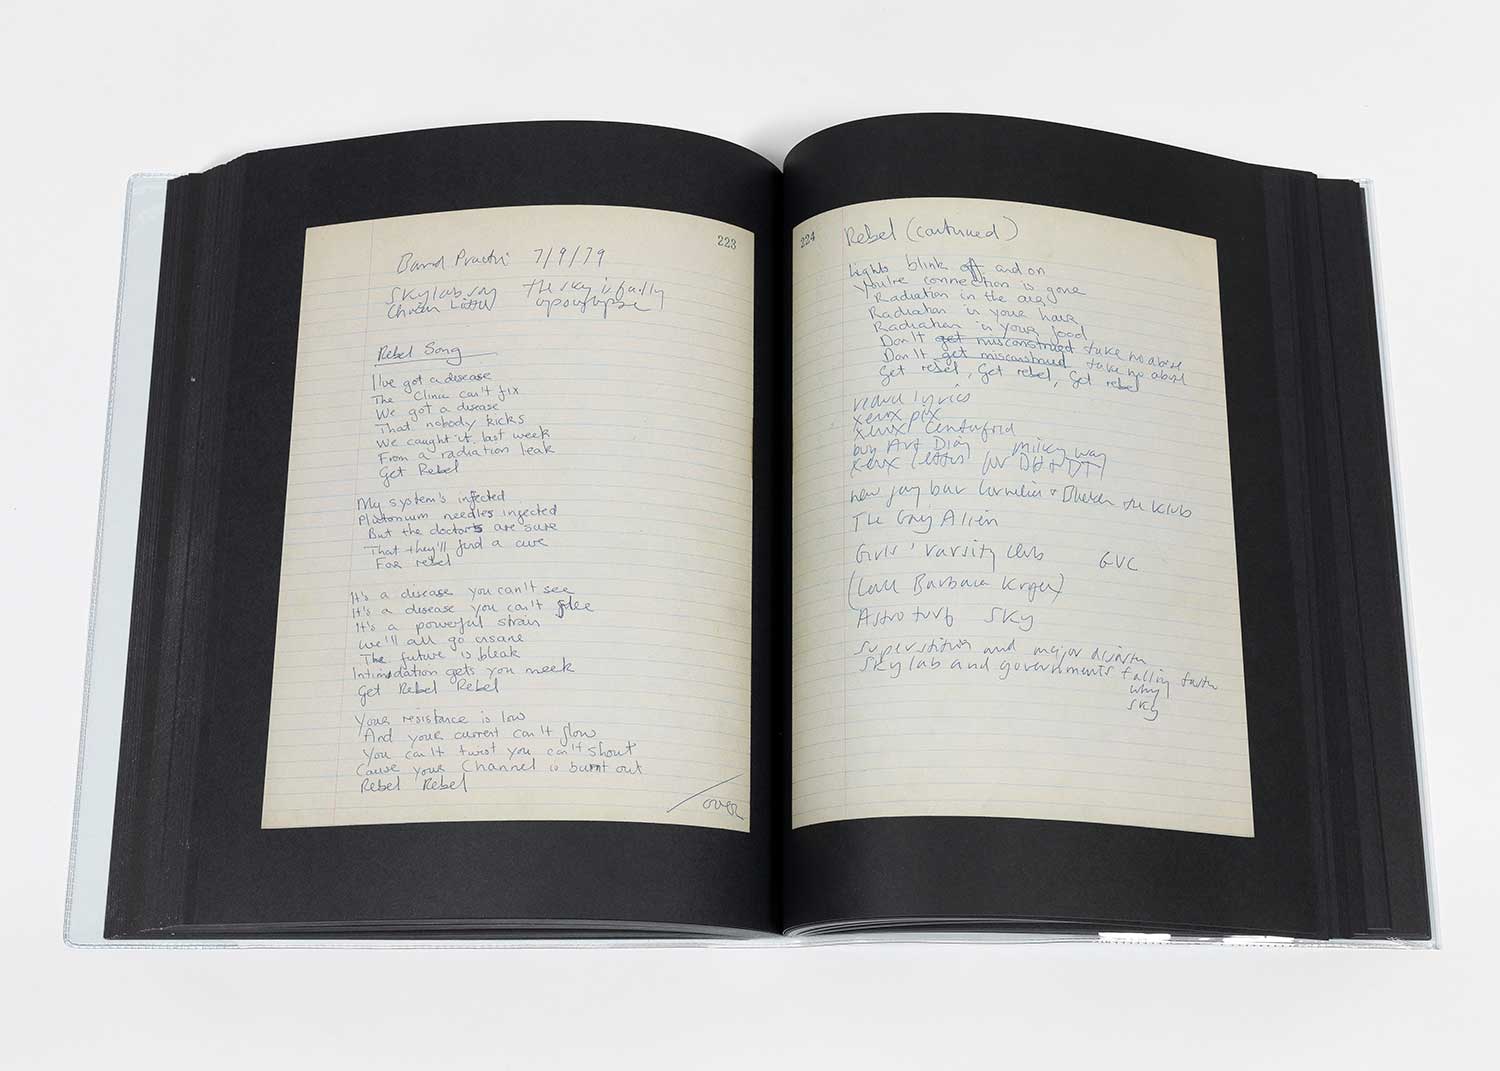 223
Band Practi 7/9/79
Skylab say the sky is falling
Chicken Little apocalypse
Rebel Song
I've got a disease
The Clinic can't fix
We got a disease
That nobody kicks
We caught it last week
From a radiation leak
Get Rebel
My system's infected
Plutonium needles injected
But the doctors are sure
That they'll find a cure
For rebel
It's a disease you can't see
It's a disease you can't flee
It's a powerful strain
We'll all go insane
The future is bleak
Intimidation gets you meek
Get Rebel Rebel
Your resistance is low
And your current can't flow
You can't twist you can't shout
Cause your Channel is burnt out
Rebel Rebel
/over
224
Rebel (continued)
Lights blink off and on
You're connection is gone
Radiation in the air
Radiation in your hair
Radiation in your food
Don't get misconstrued take no abuse
Don't get misconstrued take no abuse
Get rebel, Get rebel, Get rebel
lyrics
xerox pix
xerox Centerfold
buy Art Diary milky way
xerox letters for DH + DT
new jay bar Cornelia + the Klub
The Gray Alien
Girls' Varsity Club GVC
(Call Barbara Kruger)
Astro turf Sky
superstition and major disaster
Skylab and governments falling faster
why
sky